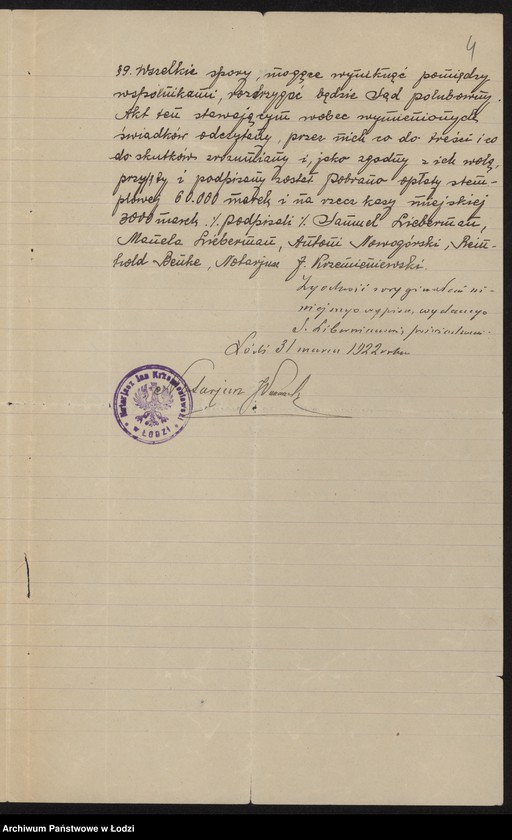 4
§9. Wszelkie spory, mogące wyniknąć pomiędzy
wspólnikami, rozstrzygać będzie Sąd polubowny.
Akt ten stawającym wobec wymienionych
świadków odczytany, przez nich co do treści i co
do skutków zrozumiany i, jako zgodny z ich wolą,
przyjęty i podpisany został. Pobrano opłaty stem-
plowej 60.000 marek i na rzecz kasy miejskiej
3000 marek ./. podpisali ./. Samuel Lieberman,
Manela Lieberman, Antoni Nowogórski, Rein-
hold Benke, Notarjusz J. Krzemieniewski.
Zgodność z oryginałem ni-
niejszego wypisu, wydanego
S. Libermanowi, poświadczam.
Łódź 31 marca 1922 roku
Notarjusz
Notarjusz Jan Krzemieniewski
w ŁODZI
Archiwum Państwowe w Łodzi